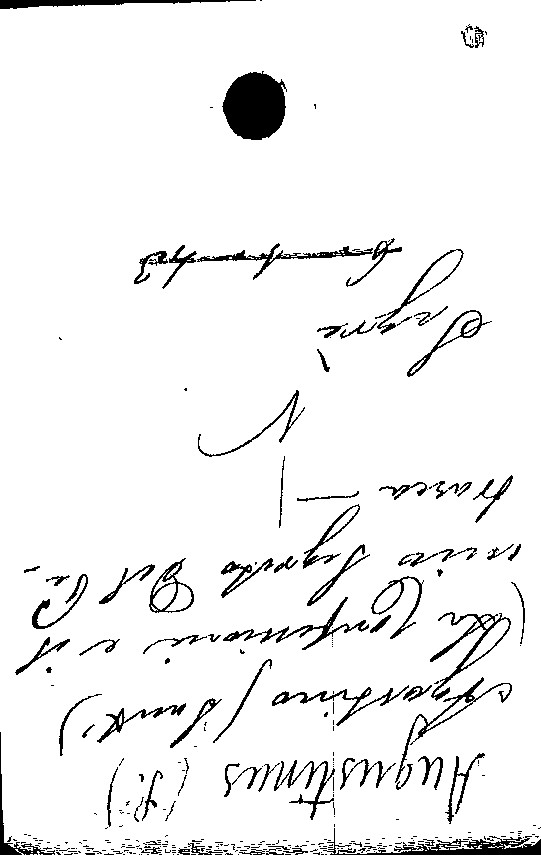 Augustinus (S.)
Agostino (Sant')
(Le Confessioni e il
mio Segreto Del Pe-
trarca — 1
N